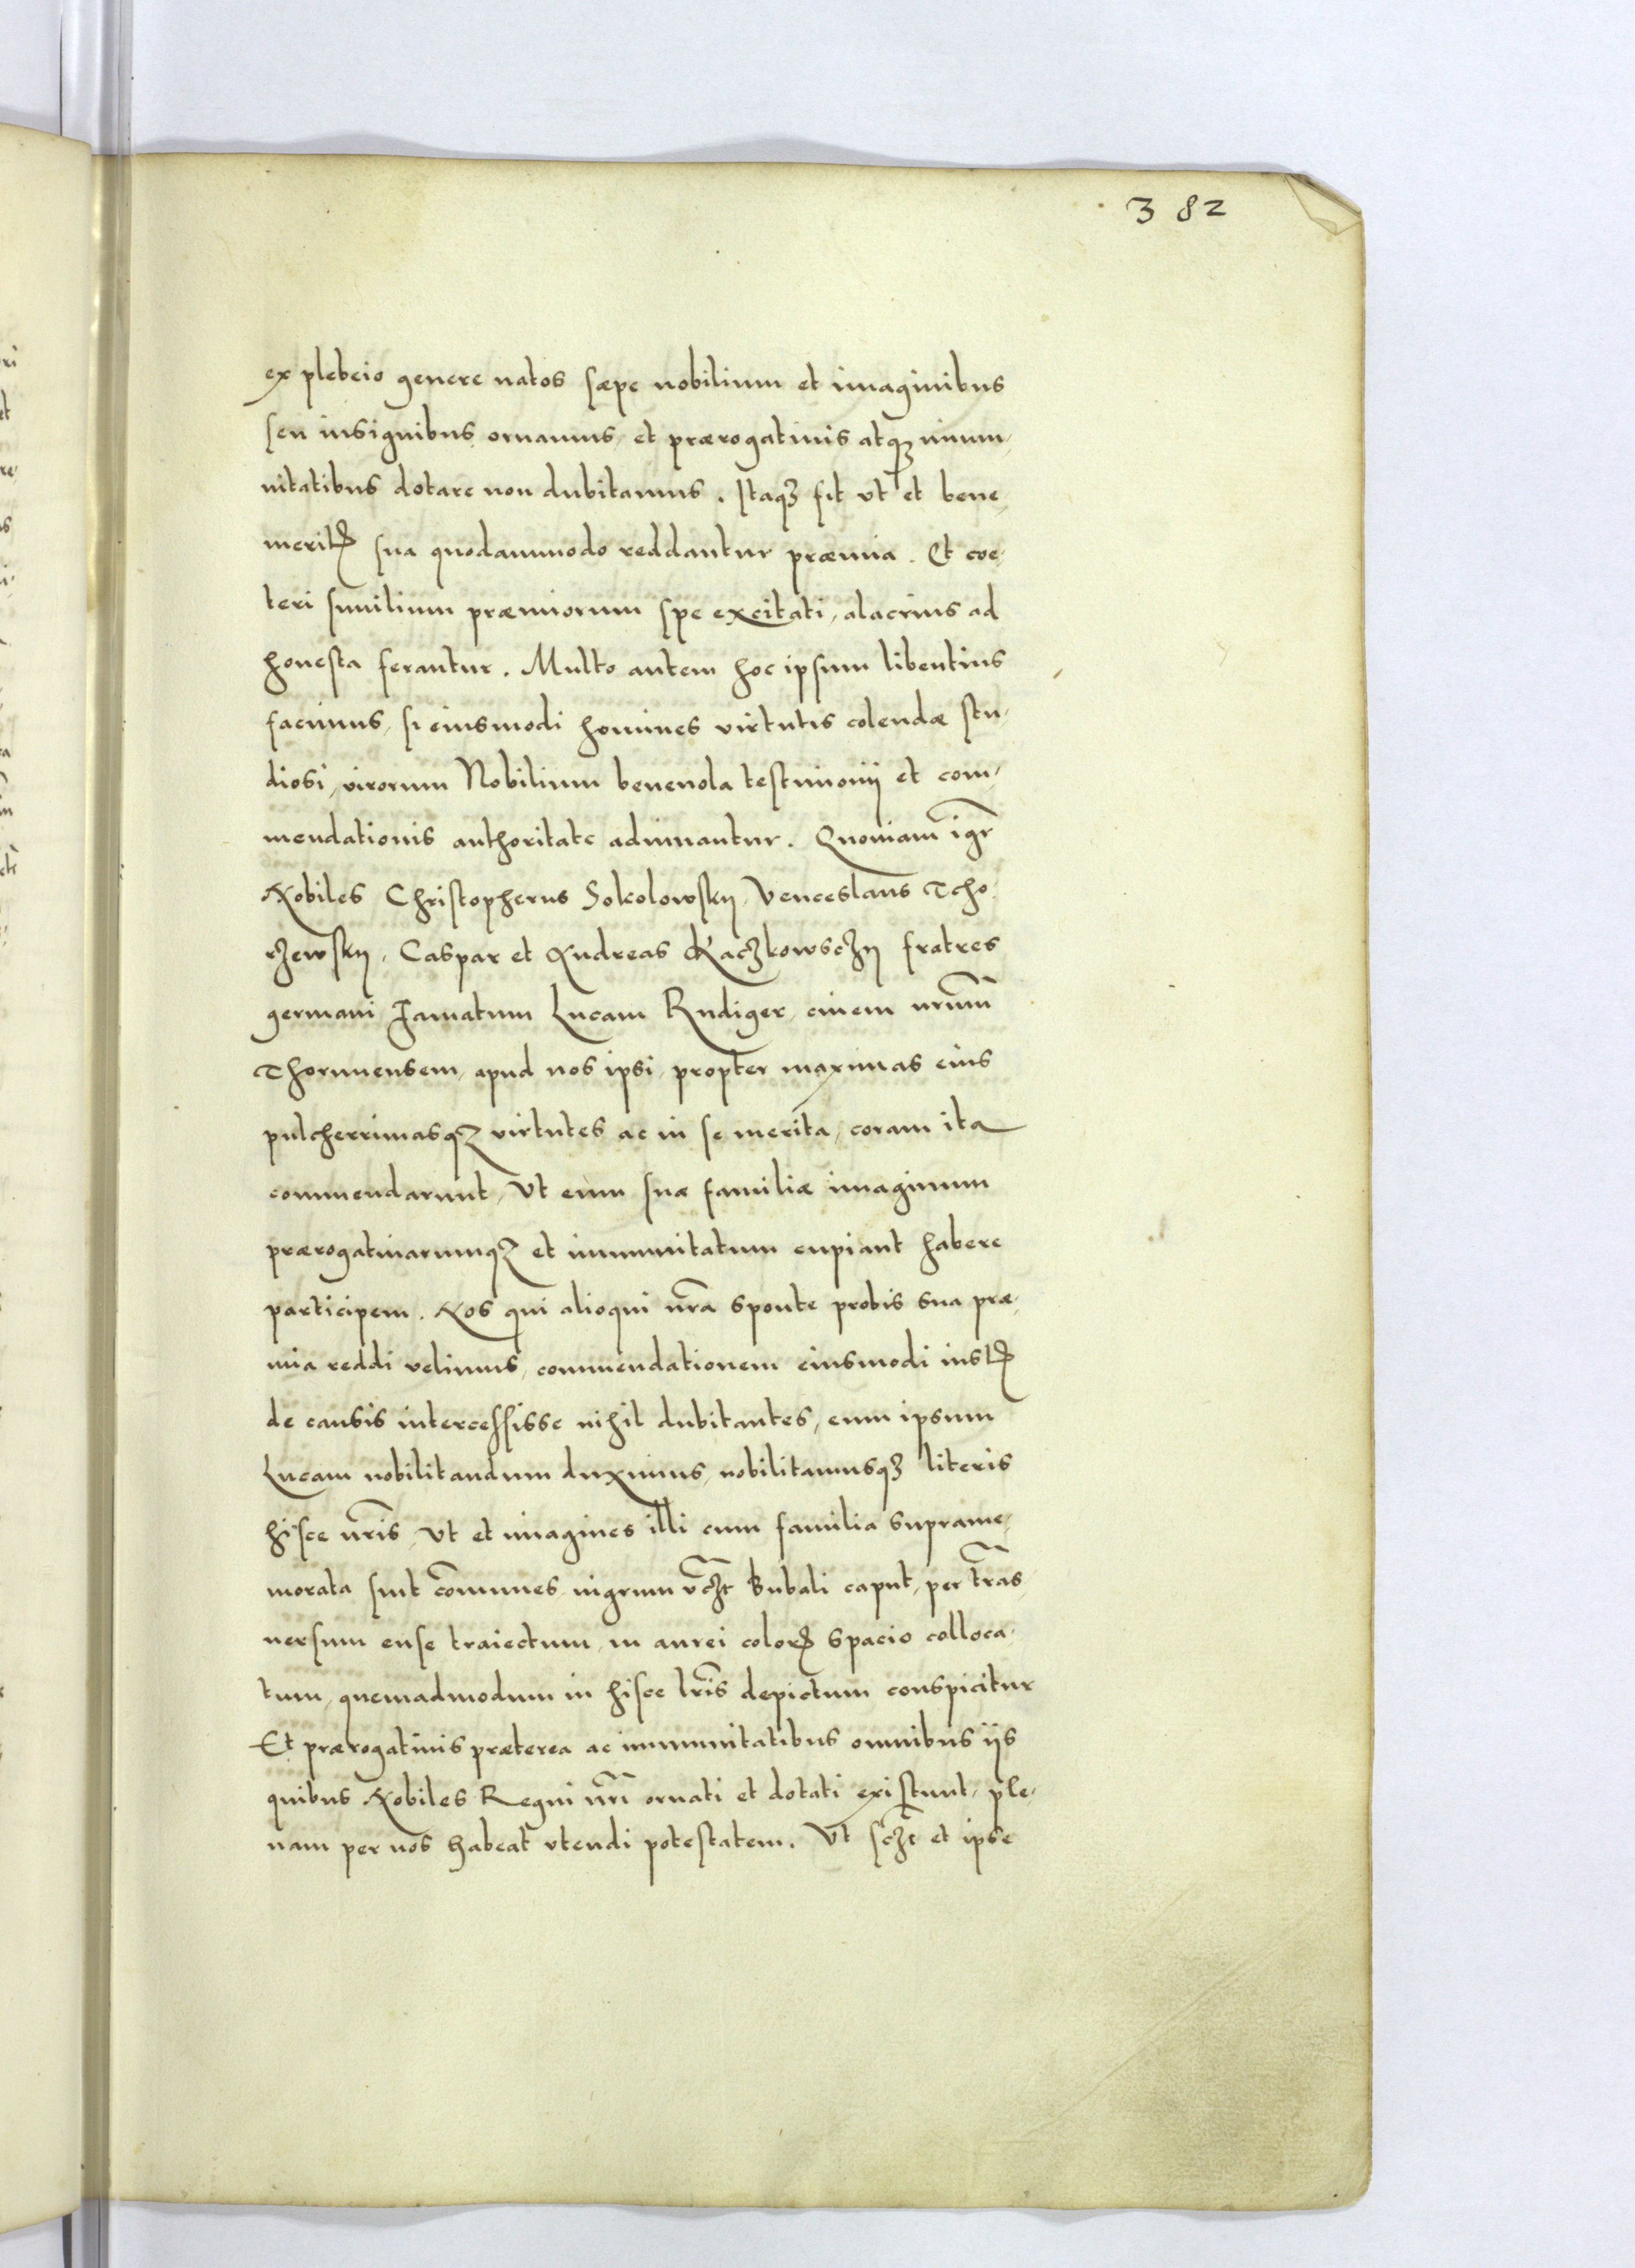 382
ex plebeio genere natos sæpe nobilium et imaginibus
seu insignibus ornamus, et prærogatiuis atqꝫ immu,
nitatibus dotare non dubitamus. Itaqꝫ fit vt et bene,
meritꝭ sua quodammodo reddantur præmia. Et coe,
teri similium præmiorum spe excitati, alacrius ad
honesta ferantur. Multo autem hoc ipsum libentius
facimus, si eiusmodi homines virtutis colendæ stu,
diosi, virorum Nobilium beneuola testimonij et com,
mendationis authoritate adiuuantur. Quoniam igr̃
Nobiles Christopherus Sokolowskij, Venceslaus Tcho,
rzewskij, Caspar et Andreas Kaczkowsczij fratres
germani Famatum Lucam Rudiger, ciuem nr̃um
Thorunensem, apud nos ipsi, propter maximas eius
pulcherrimasqꝫ virtutes ac in se merita, coram ita
commendarunt, Vt eum suæ familiæ imaginum
prærogatiuarumqꝫ et immunitatum cupiant habere
participem. Nos qui alioqui nr̃a sponte probis sua præ,
mia reddi velimus, commendationem eiusmodi iustꝭ
de causis intercessisse nihil dubitantes, eum ipsum
Lucam nobilitandum duximus, nobilitamusqꝫ literis
hisce nr̃is, Vt et imagines illi cum familia suprame,
morata sint com̃unes nigrum vꝫ̃ Bubali caput, per trãs,
uersum ense traiectum, in aurei colorꝭ spacio colloca,
tum, quemadmodum in hisce lr̃is depictum conspicitur
Et prærogatiuis præterea ac immunitatibus omnibus ijs
quibus Nobiles Regni nr̃i ornati et dotati existunt, ple,
nam per nos habeat vtendi potestatem. Vt scꝫt et ipse